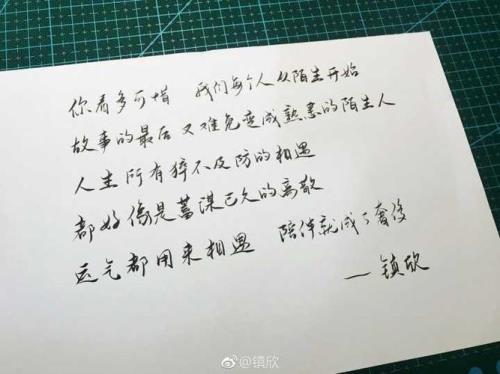 你看多可惜 我们每个人从陌生开始
故事的最后又难免变成熟悉的陌生人
人生所有猝不及防的相遇
都好像是蓄谋已久的离散
运气都用来相遇 陪伴就成了奢侈
—镇欣
@镇欣